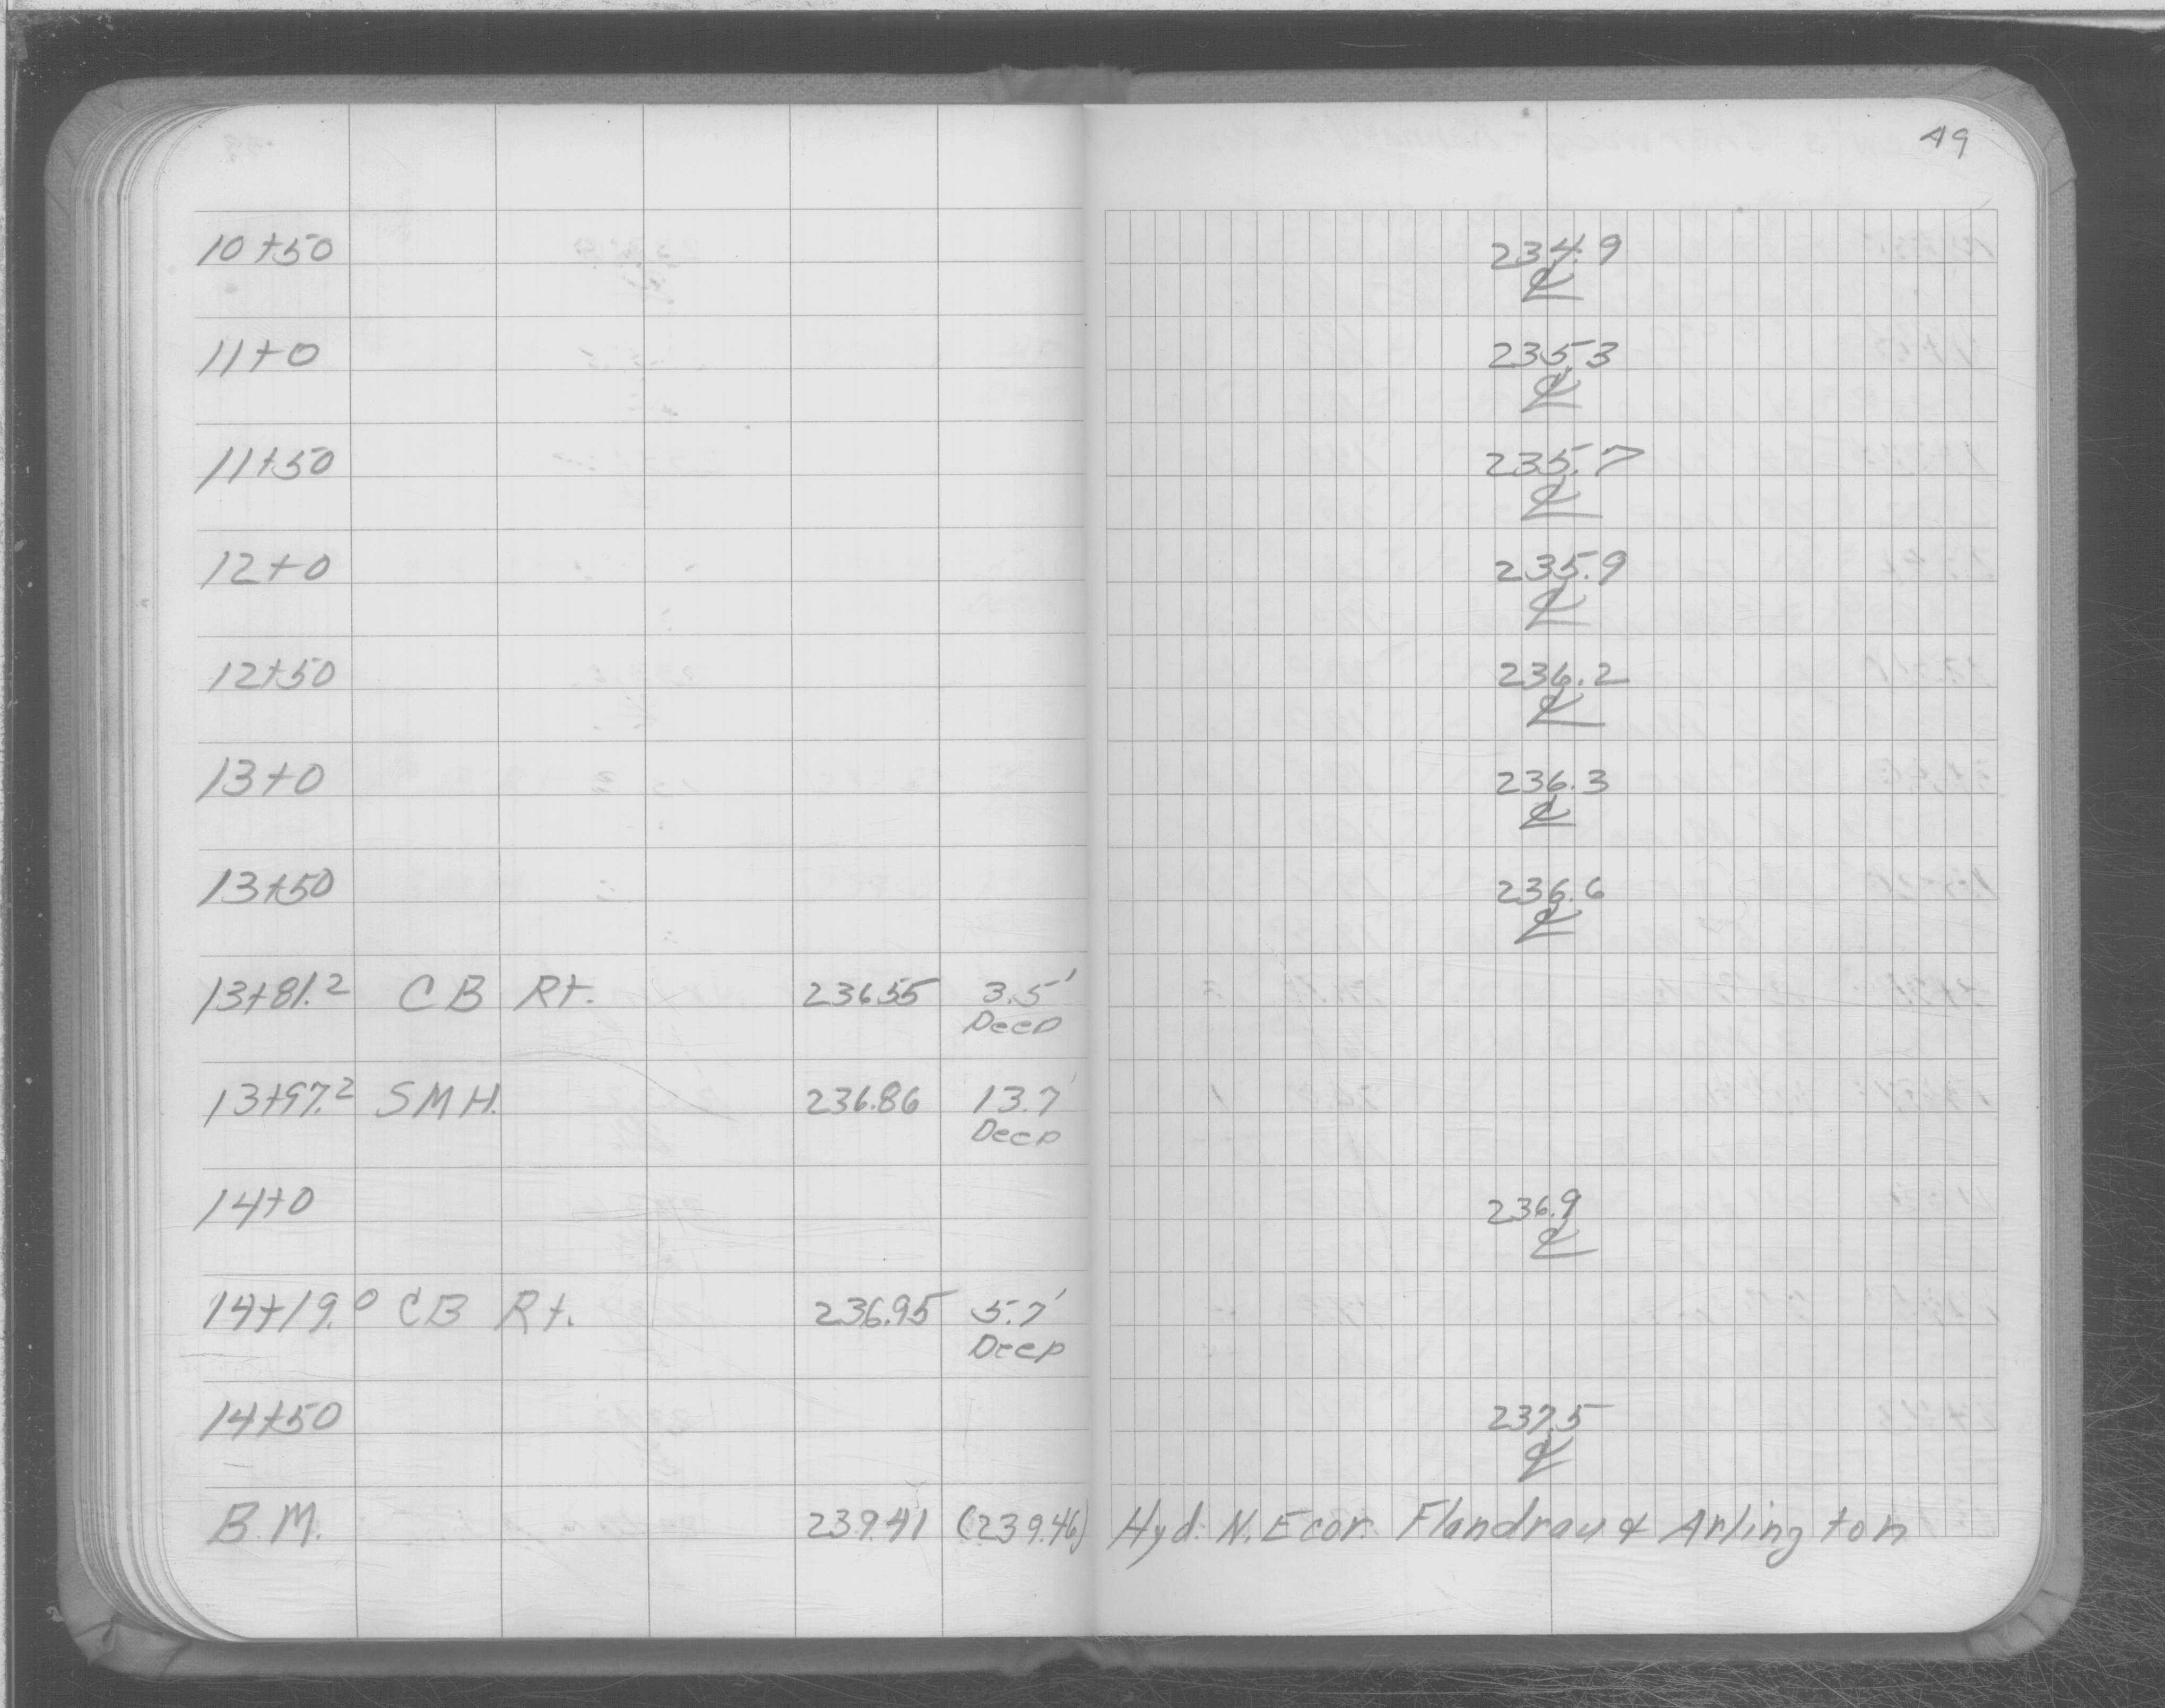 49
10+50 234.9
℄
11+0 235.3
℄
11+50 235.7
℄
12+0 235.9
℄
12+50 236.2
℄
13+0 236.3
℄
13+50 236.6
℄
13+81.2 CB Rt. 236.55 3.5'
Deep
13+97.2 SMH. 236.86 13.7'
Deep
14+0 236.9
℄
14+19.0 CB Rt. 236.95 5.7'
Deep
14+50 237.5
℄
B.M. 239.41 (239.46) Hyd. N.E cor. Flandrau & Arlington